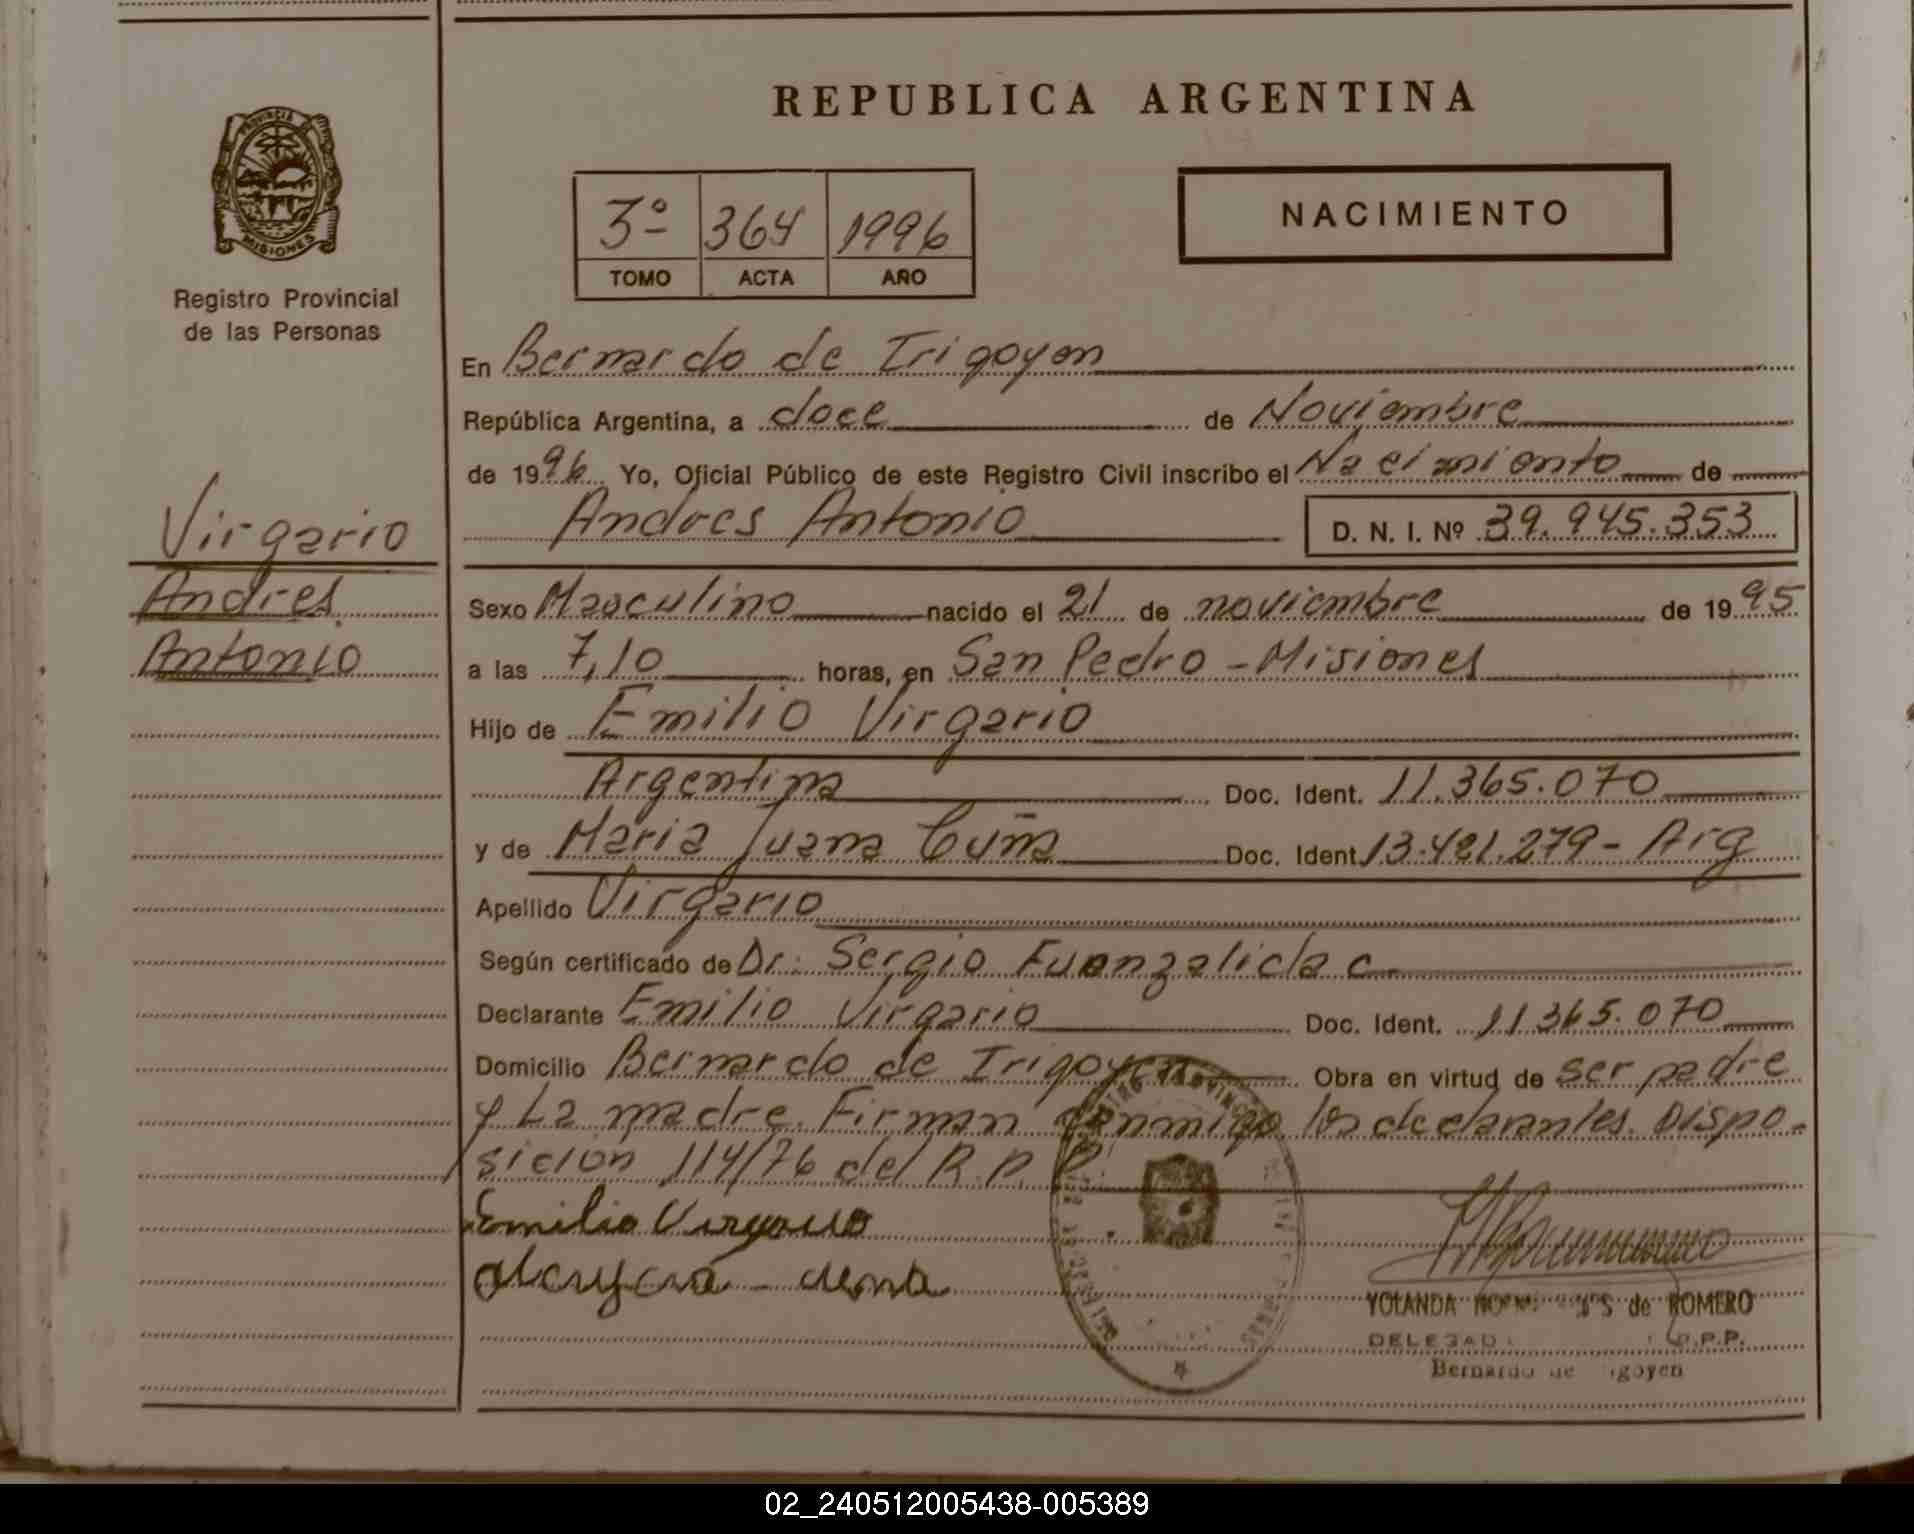 REPUBLICA ARGENTINA
PROVINCIA DE
MISIONES
Registro Provincial
de las Personas
3º 364 1996
TOMO ACTA AÑO
NACIMIENTO
En Bernardo de Irigoyen
República Argentina, a doce de Noviembre
de 1996 Yo, Oficial Público de este Registro Civil inscribo el Nacimiento de
Andres Antonio D. N. I. Nº 39.945.353
Virgario
Andres
Antonio
Sexo Masculino nacido el 21 de noviembre de 1995
a las 7,10 horas, en San Pedro - Misiones
Hijo de Emilio Virgario
Argentina Doc. Ident. 11.365.070
y de Maria Juana Cuña Doc. Ident. 13.421.279 - Arg
Apellido Virgario
Según certificado de Dr. Sergio Fuenzalida C.
Declarante Emilio Virgario Doc. Ident. 11365.070
Domicilio Bernardo de Irigoyen Obra en virtud de ser padre
y La madre. Firman conmigo los declarantes. Dispo-
sición 114/76 del R.P.P.
Emilio Virgario
YOLANDA de ROMERO
R.P.P.
Bernardo de Irigoyen
02_240512005438-005389